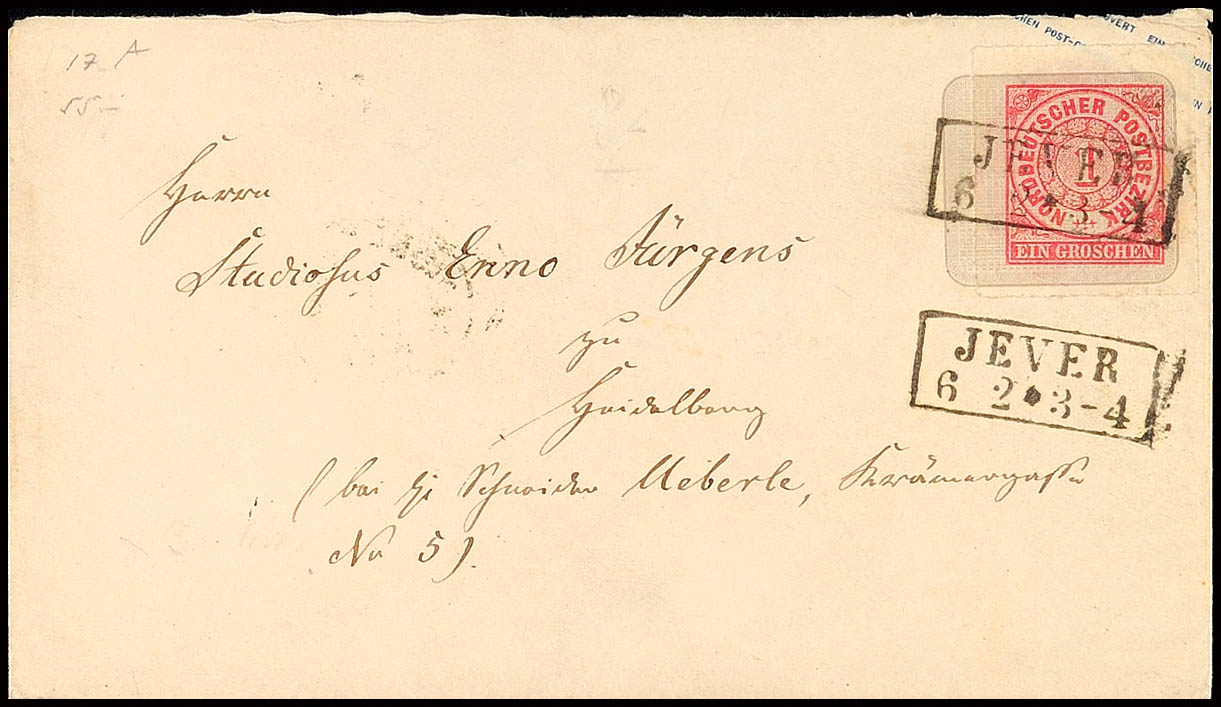 17 A
55
VERT EIN
CHEN POST-C
NORDDEUTSCHER POSTBEZIRK
1
EIN GROSCHEN
JEVER
6 2 3-4
Herrn
Studiosus Enno Jürgens
zu
JEVER
6 2 3-4
Heidelberg
(bei Schneider Ueberle, Krämergasse
No 5).